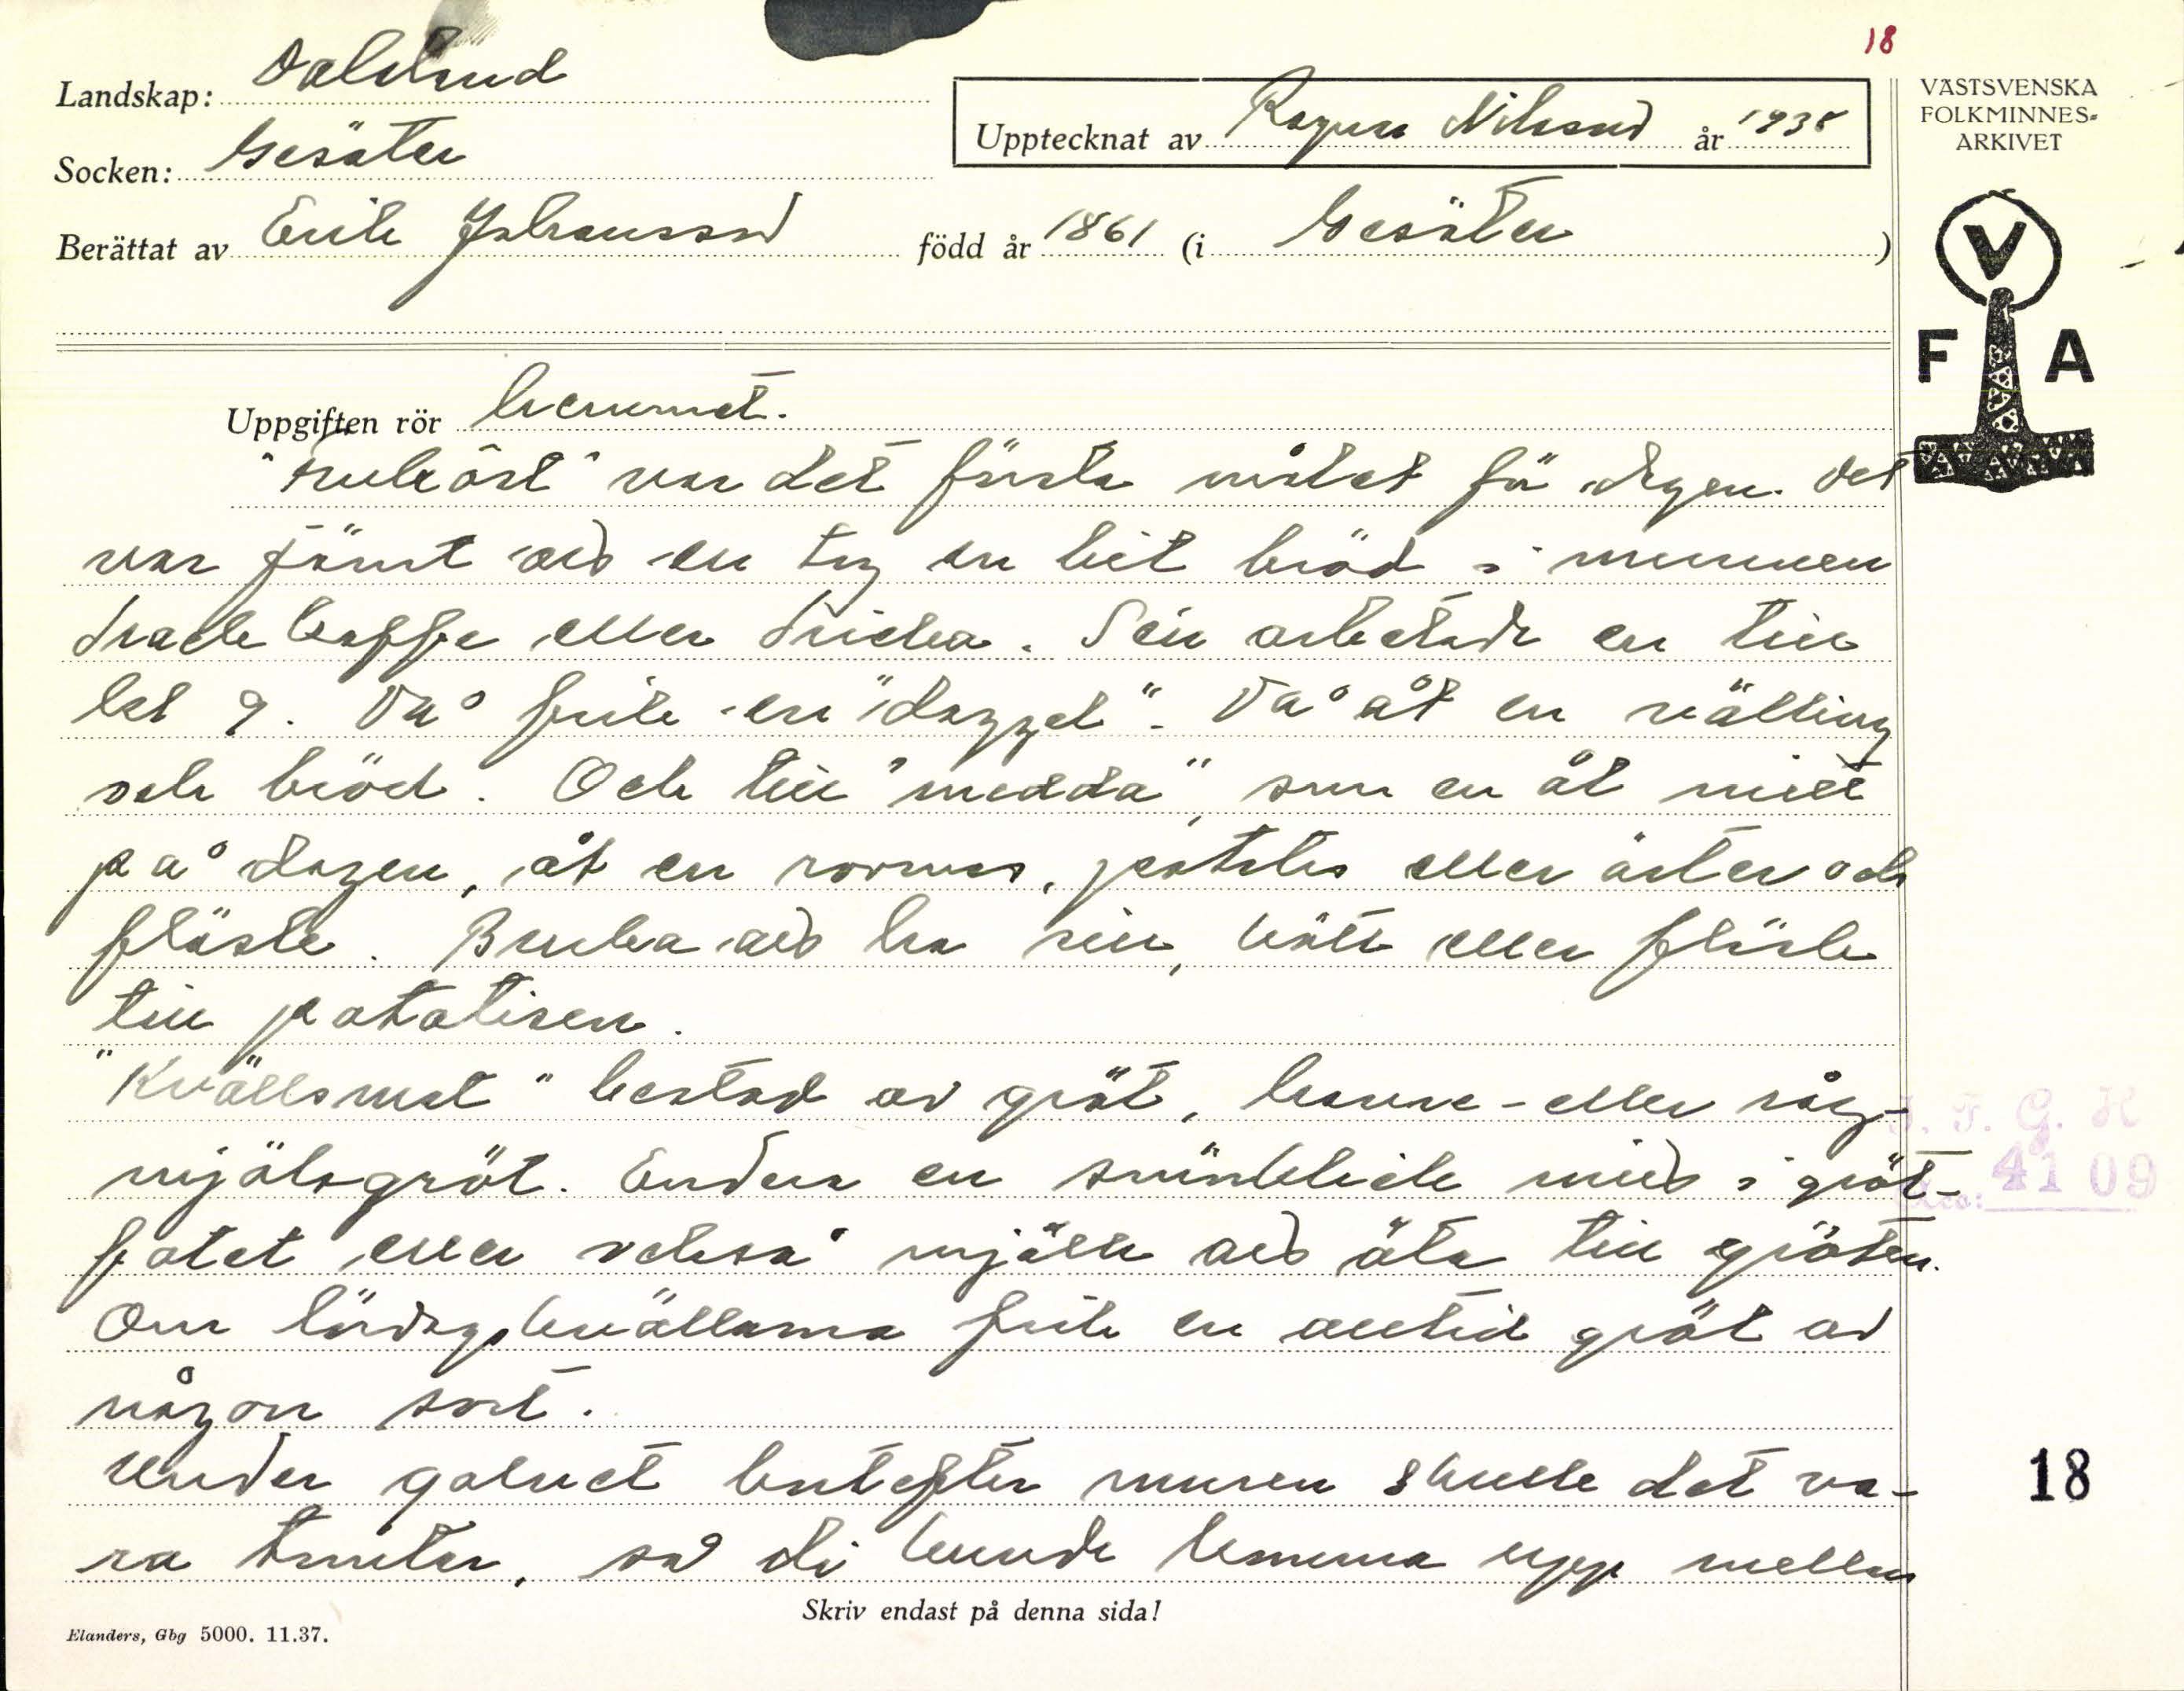 18
Landskap: Dalsland
Upptecknat av Ragnar Nilsson år 1938
VÄSTSVENSKA
FOLKMINNES-
ARKIVET
Socken: Gesäter
Berättat av Erik Johansson född år 1861 (i Gesäter)
V
F A
Uppgiften rör hemmet.
var det första målet för dagen. Det
var jämt att en tog en bit bröd i munnen
drack kaffe eller dricka. Sen arbetade en till
kl 9. Då fick en "duggel". Då åt en välling
och bröd. Och till "medda" som en åt mitt
på dagen, åt en potatis eller ärter och
fläsk. Bruka att ha sill, kött eller fläsk
till potatisen.
"Kvällsmat" bestod av gröt, havre- eller råg-
mjölsgröt. Endera en smörklick mitt i gröt-
fatet eller också mjölk att äta till gröten.
Om lördagskvällarna fick en alltid gröt av
någon sort.
Under golvet bortefter muren skulle det va-
ra tomter, så di kunde komma upp mellan
Skriv endast på denna sida!
Elanders, Gbg 5000. 11.37.
I. F. G. H
Acc: 4109
18